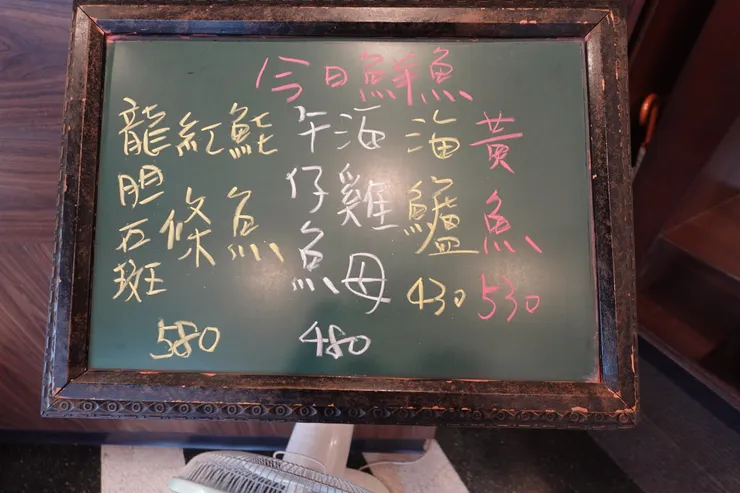 今日鮮魚
黃魚
530
海鱸
430
海雞母
午仔魚
480
鮸魚
紅條
龍胆石斑
580